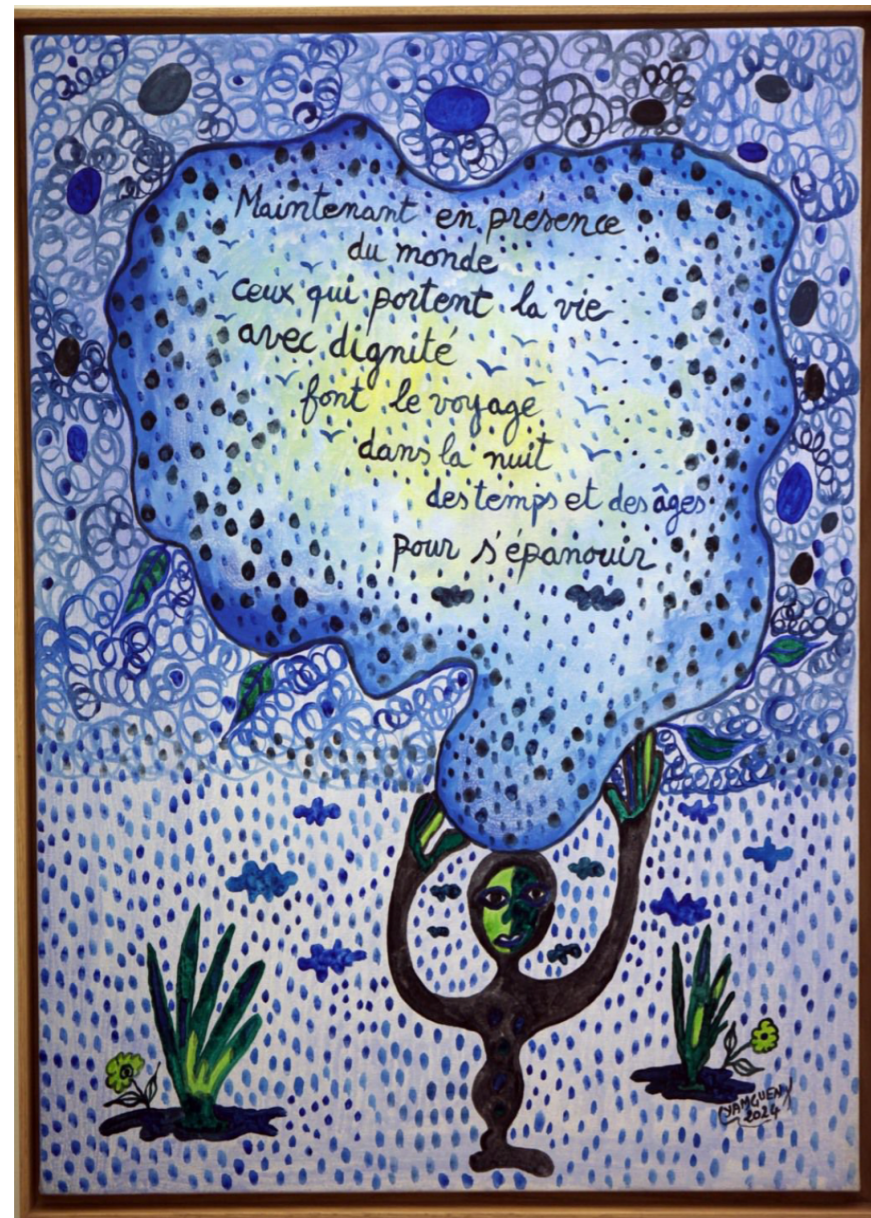 Maintenant en présence
du monde
ceux qui portent la vie
avec dignité
font le voyage
dans la nuit
des temps et des âges
pour s'épanouir
YAMGUEN
2024